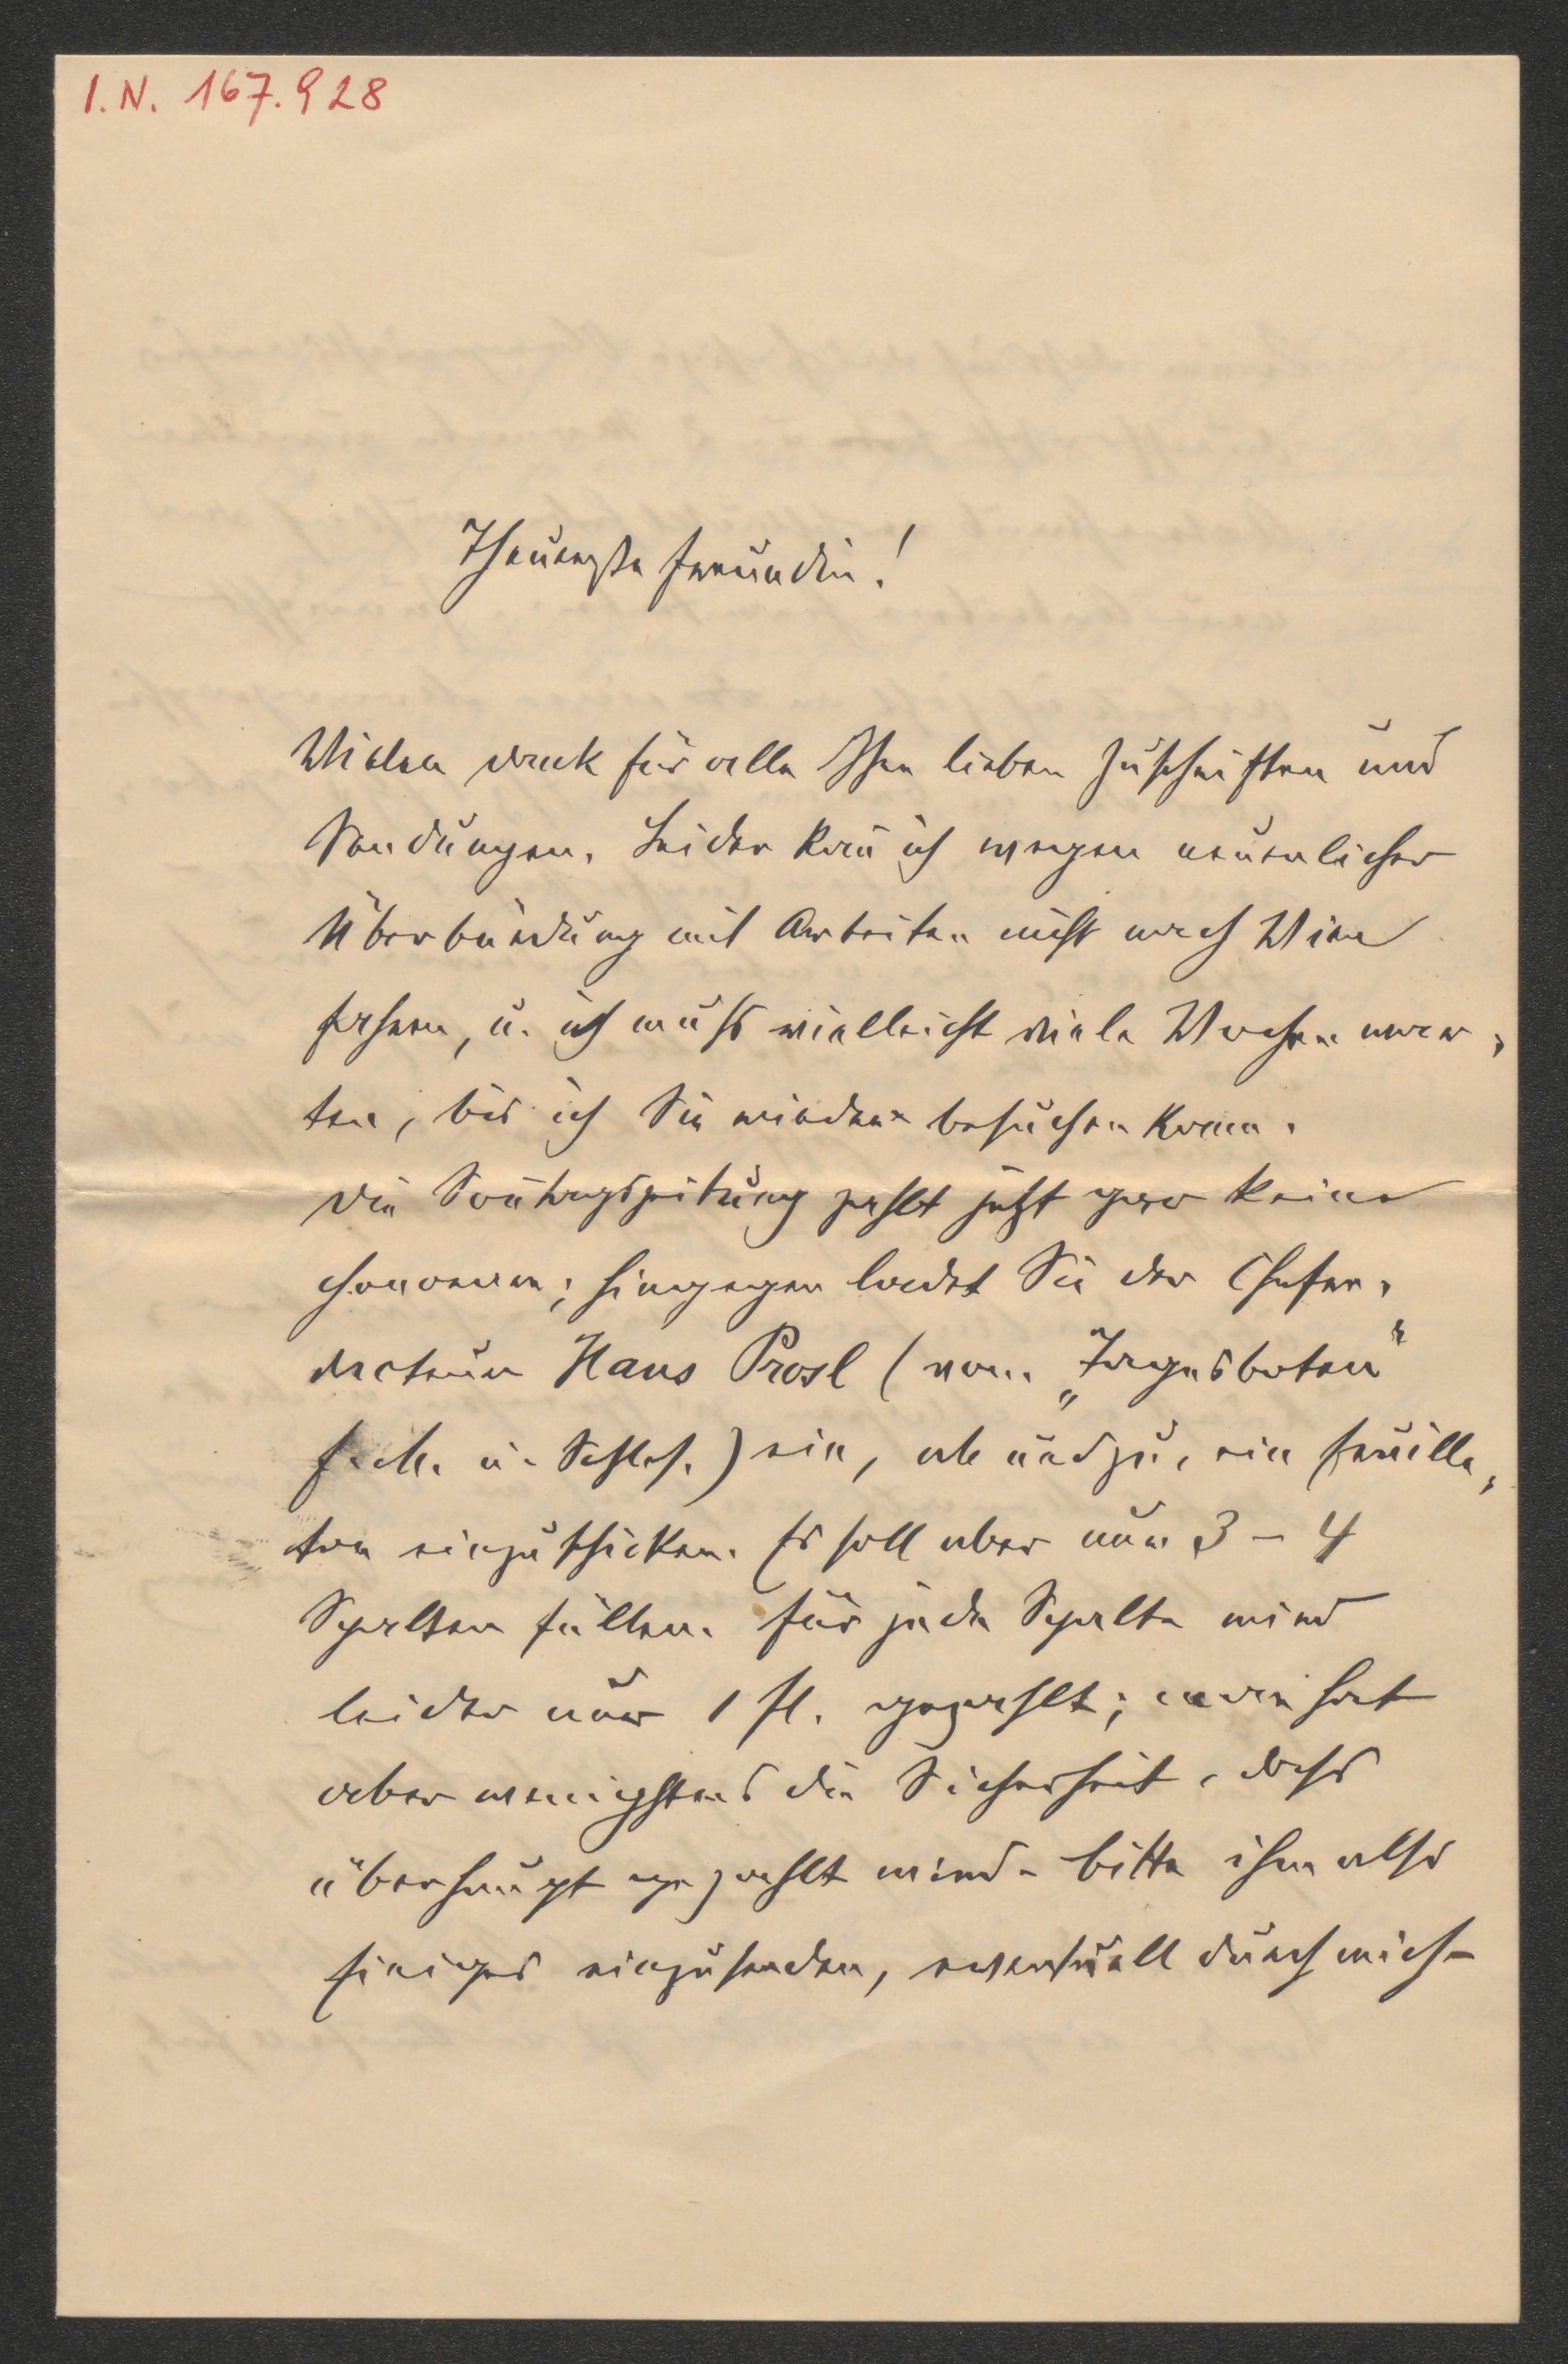 I.N. 167.928
Theuerste Freundin!
Vielen Dank für alle Ihre lieben Zuschriften und
Sendungen. Leider kañ ich wegen neuerlicher
Überbürdung mit Arbeiten nicht nach Wien
fahren, u. ich muß vielleicht viele Wochen war-
ten, bis ich Sie wieder besuchen kann.
Die Soñtagszeitung zahlt jetzt gar keine
Honorare; hingegen ladet Sie der Chefre-
dacteur Hans Prosl (vom „Tagesboten"
f. M. u. Schles.) ein, ab und zu, ein Feuille-
ton einzuschicken. Es soll aber nur 3 – 4
Spalten füllen. Für jede Spalte wird
leider nur 1 fl. gezahlt; man hat
aber wenigstens die Sicherheit, daß
überhaupt gezahlt wird. Bitte ihm also
Einiges einzusenden, eventuell durch mich.